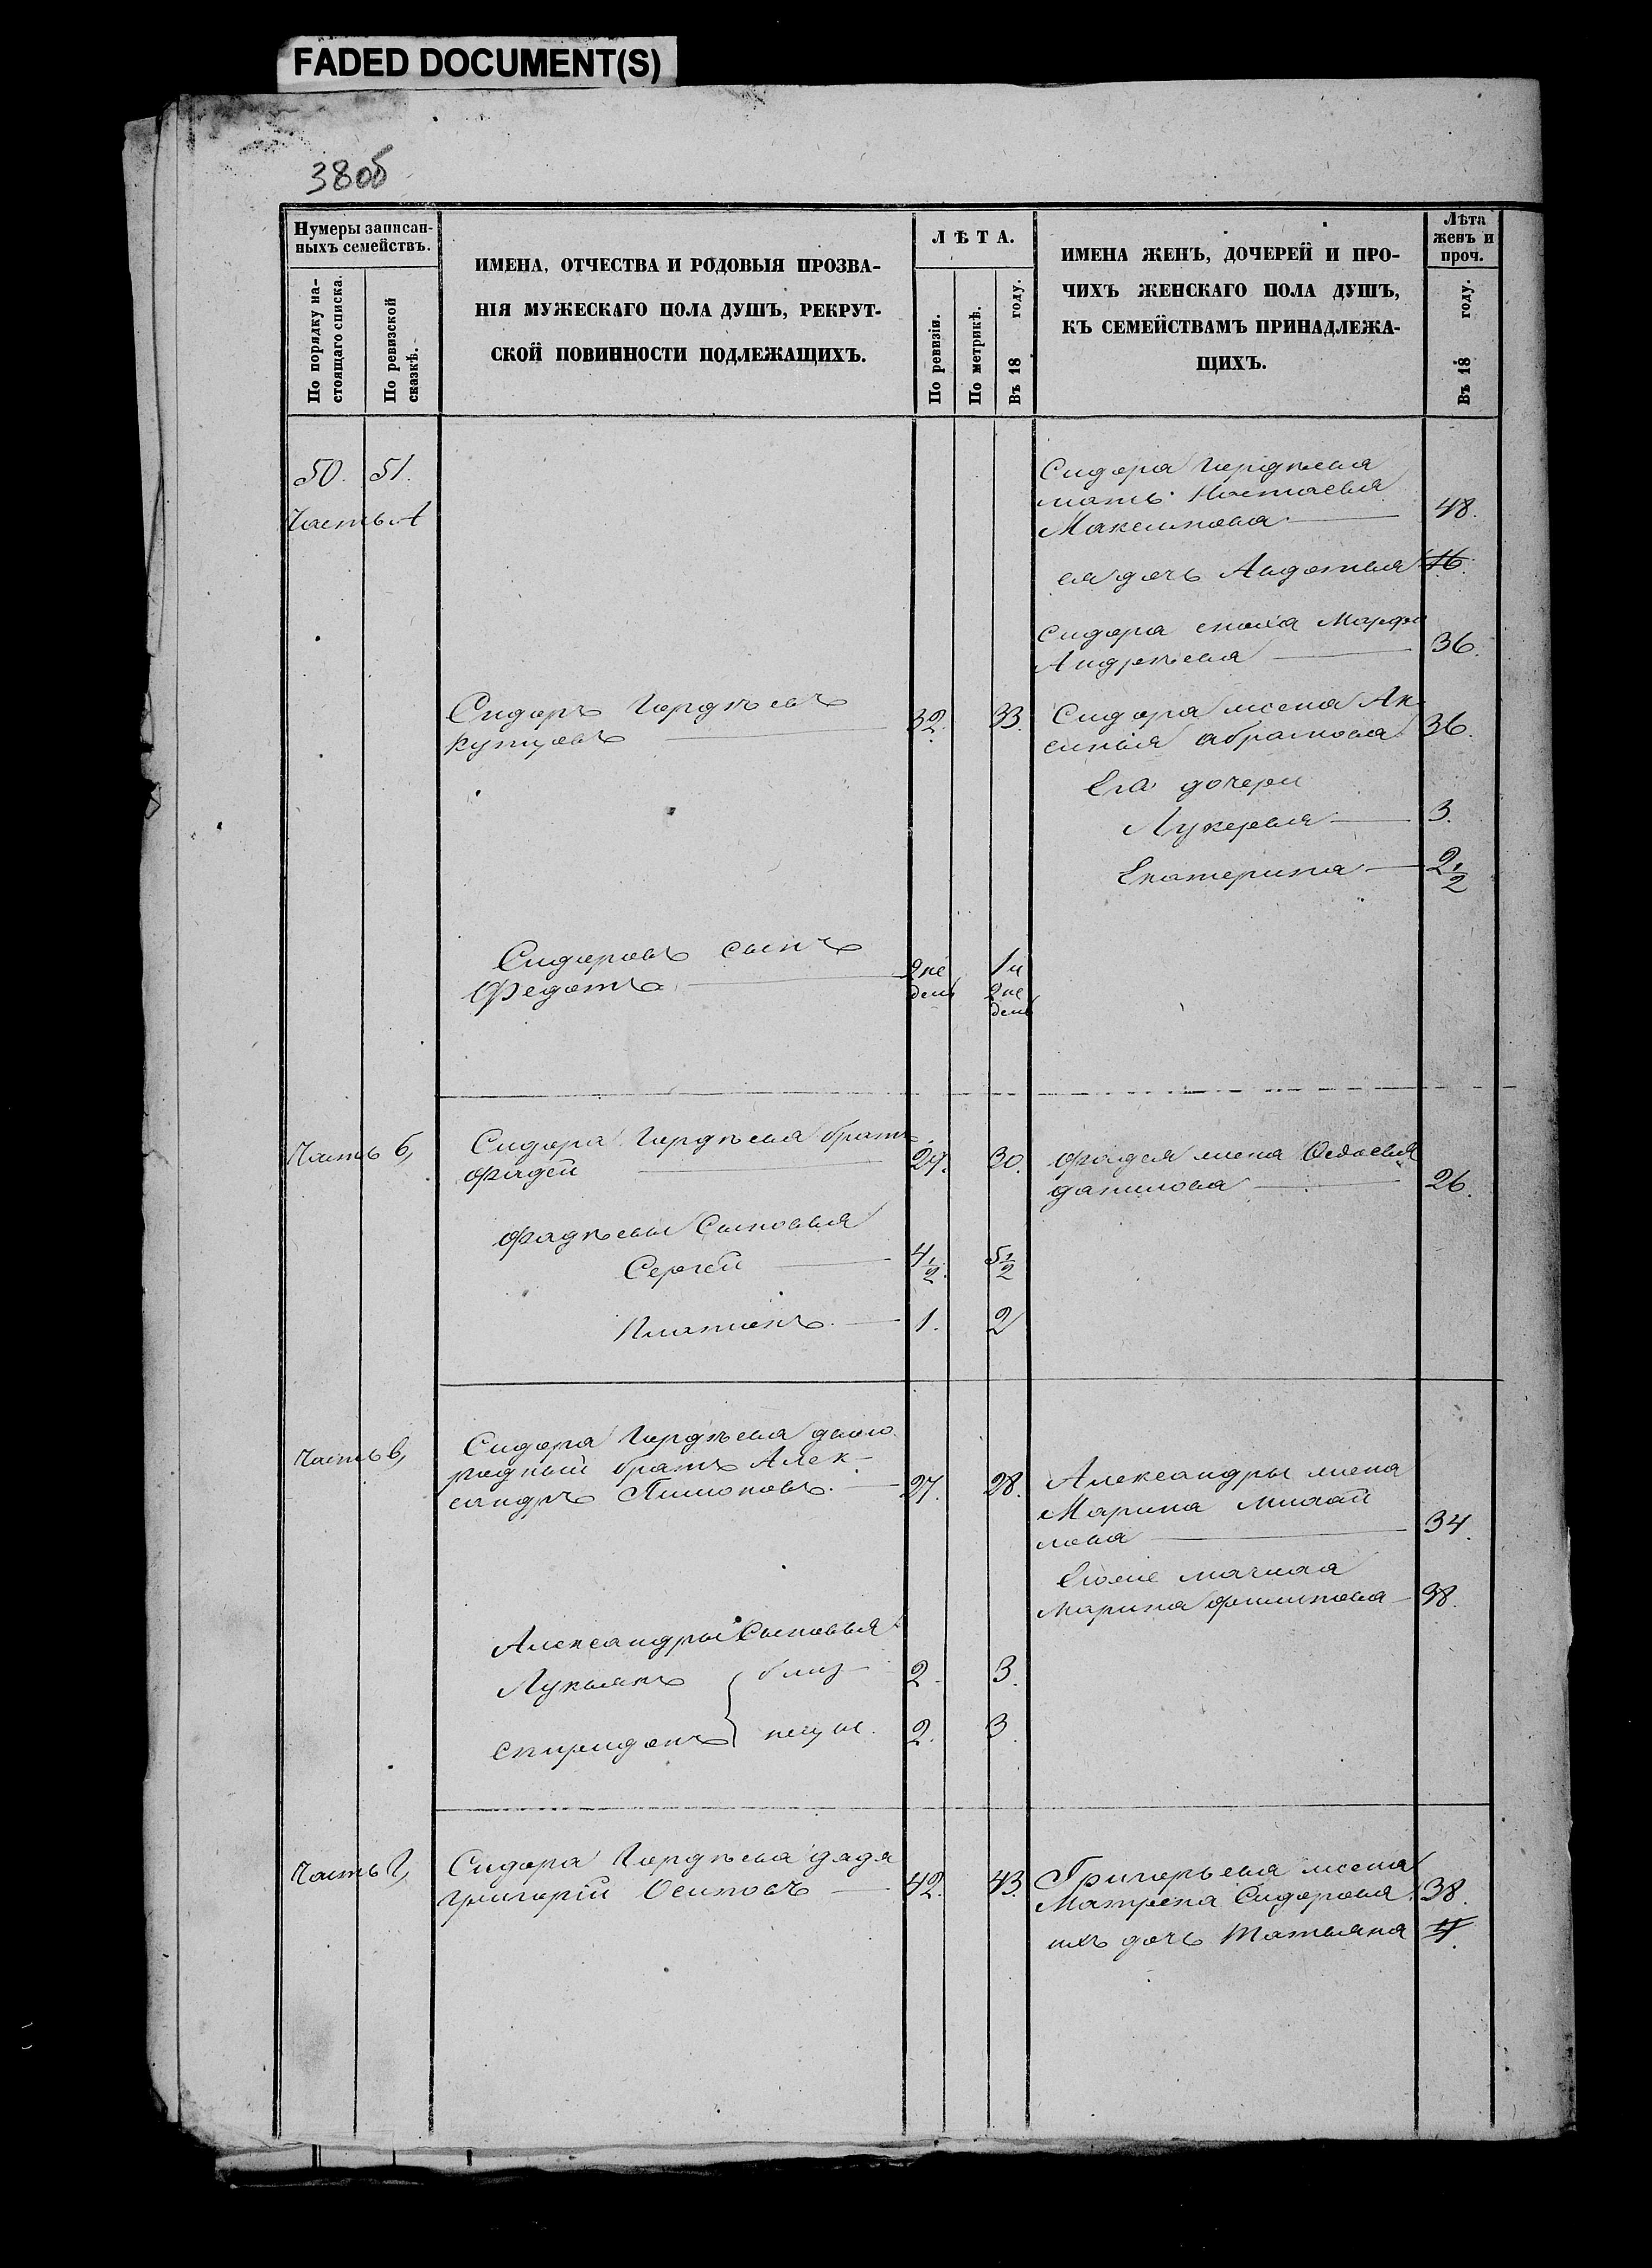 FADED DOCUMENT(S)
38об
Нумеры записан-
ныхъ семействъ.
По порядку на-
стоящаго списка.
По ревизской
сказкѣ.
ИМЕНА, ОТЧЕСТВА И РОДОВЫЯ ПРОЗВА-
НІЯ МУЖЕСКАГО ПОЛА ДУШЪ, РЕКРУТ-
СКОЙ ПОВИННОСТИ ПОДЛЕЖАЩИХЪ.
ЛѢТА.
По ревизіи.
По метрикѣ.
Въ 18 году.
ИМЕНА ЖЕНЪ, ДОЧЕРЕЙ И ПРО-
ЧИХЪ ЖЕНСКАГО ПОЛА ДУШЪ,
КЪ СЕМЕЙСТВАМЪ ПРИНАДЛЕЖА-
ЩИХЪ.
Лѣта
женъ и
проч.
Въ 18 году.
50. 51.
Часть А
Сидора Гордѣева
мать Настасья
Максимова 48.
ея дочь Авдотья 16.
Сидора сноха Марфа
Андреѣва 36.
Сидоръ Гордѣевъ
Купцовъ 32. 33.
Сидора жена Ак
синья Абрамова 36.
Его дочери
Лукерья 3.
Екатерина 2 1/2
Сидоровъ сынъ
Федотъ 2 не дель 1 и 2 не дель
Часть б,
Сидора Гордѣева братъ
Фадей 29. 30.
Фадея жена Федосья
Данилова 26.
Фадѣевы Сыновья
Сергей 4 1/2. 5 1/2
Платонъ 1. 2
Часть в,
Сидора Гордѣева двою
родный братъ Алек-
сандръ Пимоновъ. 27. 28.
Александры жена
Марина Михай
лова 34.
Егоже мачиха
Марина Филипова 38.
Александры Сыновья
Лукьянъ близ 2. 3.
Спиридонъ нецы. 2. 3.
Часть Г,
Сидора Гордѣева дядя
Григорій Осиповъ 42. 43.
Григорьева жена
Матрена Сидорова 38.
ихъ дочь Татьяна 4.